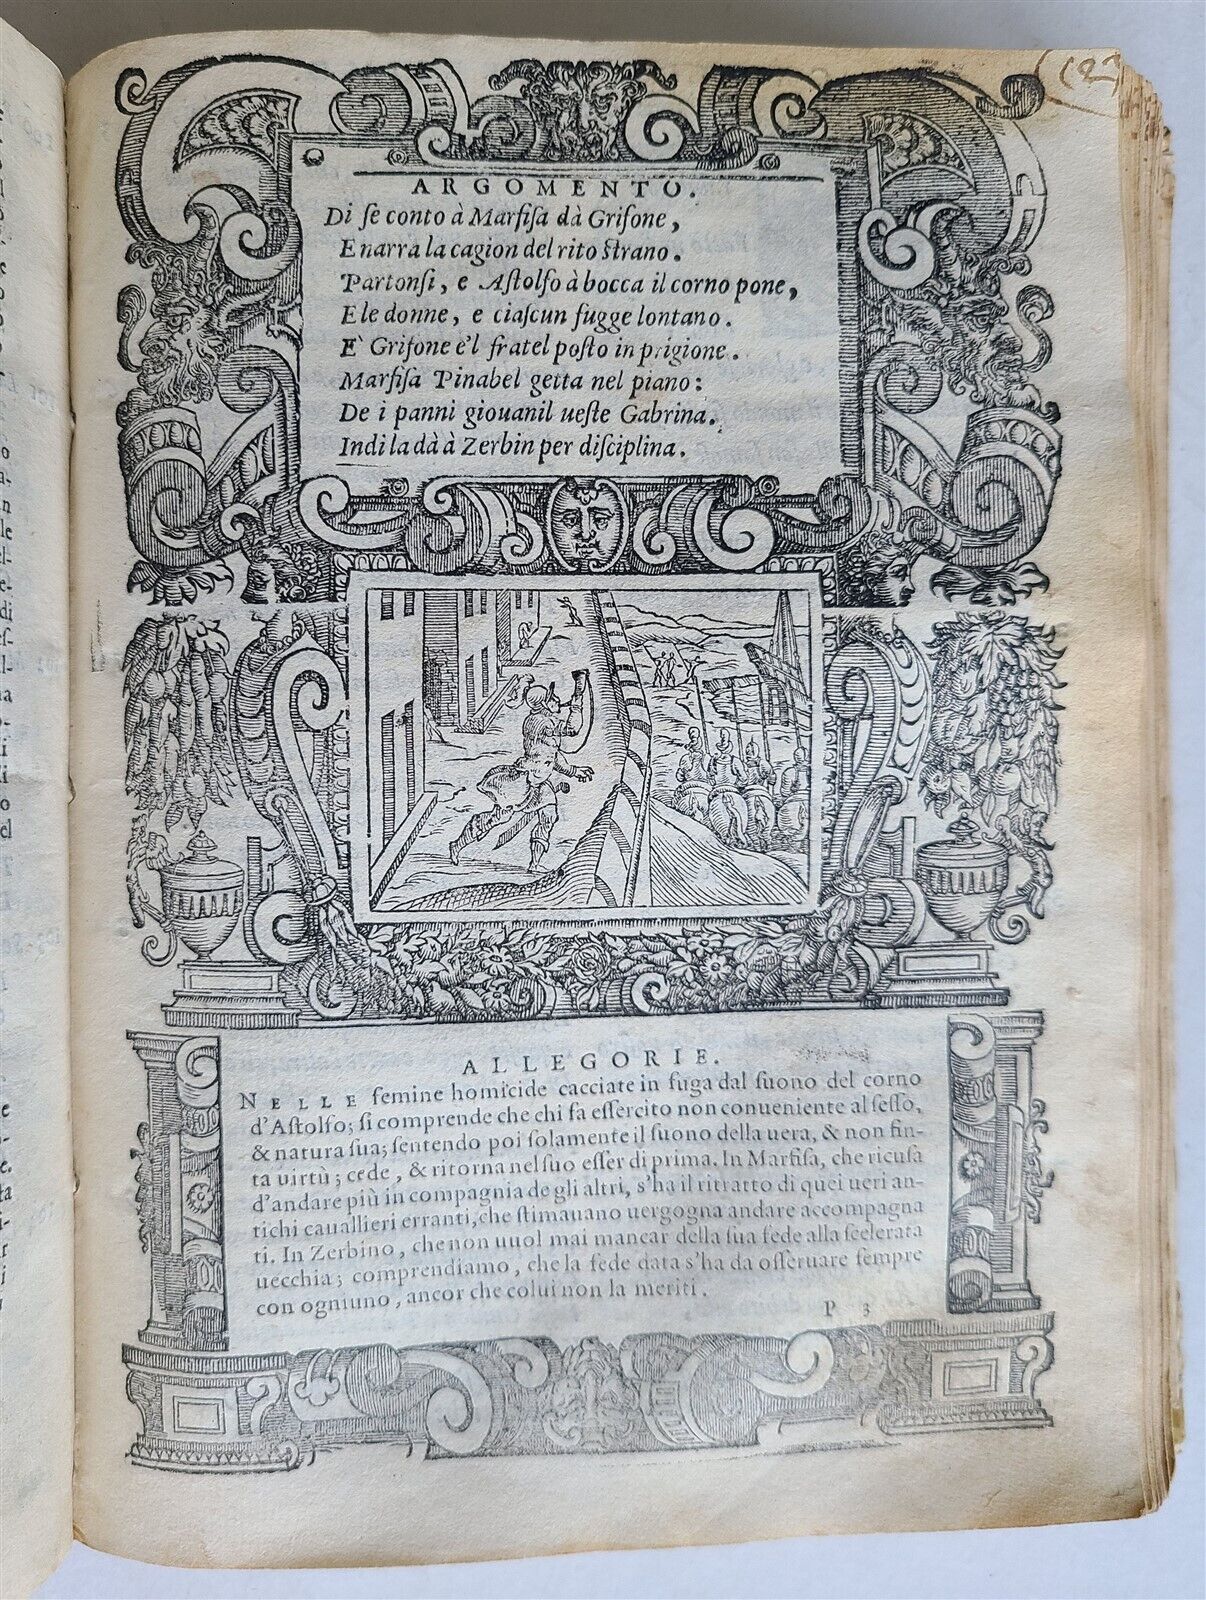 (22)
ARGOMENTO.
Di ſe conto à Marfiſa dà Grifone,
E narra la cagion del rito ſtrano.
Partonſi, e Aſtolfo à bocca il corno pone,
E le donne, e ciaſcun fugge lontano.
E' Grifone e'l fratel poſto in prigione.
Marfiſa Pinabel getta nel piano:
De i panni giouanil ueſte Gabrina.
Indi la dà à Zerbin per diſciplina.
ALLEGORIE.
NELLE femine homicide cacciate in fuga dal ſuono del corno
d'Aſtolfo; ſi comprende che chi fa eſſercito non conueniente al ſeſſo,
& natura ſua; ſentendo poi ſolamente il ſuono della uera, & non fin-
ta uirtù; cede, & ritorna nel ſuo eſſer di prima. In Marfiſa, che ricuſa
d'andare più in compagnia de gli altri, s'ha il ritratto di quei ueri an-
tichi cauallieri erranti, che ſtimauano uergogna andare accompagna
ti. In Zerbino, che non uuol mai mancar della ſua fede alla ſcelerata
uecchia; comprendiamo, che la fede data s'ha da oſſeruare ſempre
con ogniuno, ancor che colui non la meriti.
P 3